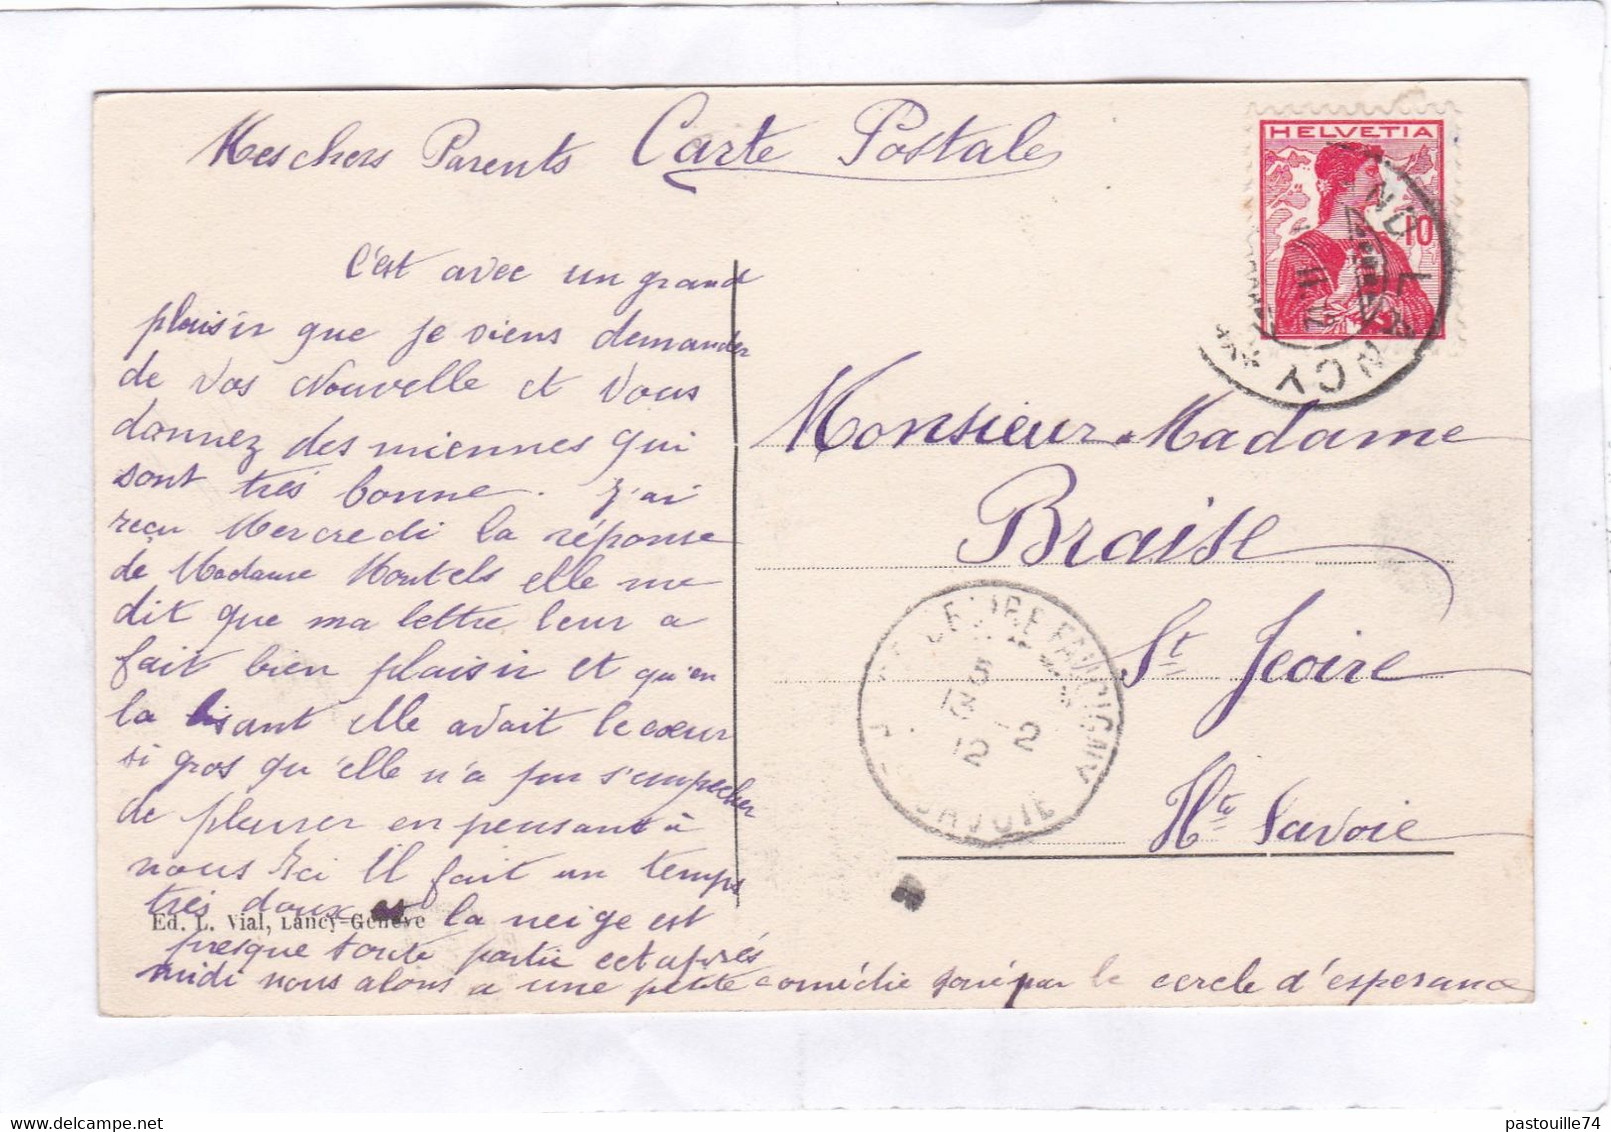 Mes chers Parents Carte Postale
C'est avec un grand
plaisir que je viens demander
de vos Nouvelle et Vous
donnez des miennes qui
sont très bonne. J'ai
reçu Mercredi la réponse
de Madame Montels elle me
dit que ma lettre leur a
fait bien plaisir et qu'en
la lisant elle avait le cœur
si gros qu'elle n'a pu s'empecher
de pleurer en pensant à
nous Ici Il fait un temps
très doux la neige est
presque toute partie cet après
midi nous alons a une petite comédie joué par le cercle d'esperance
Ed. L. Vial, Lancy-Genève
HELVETIA
10
LANCY
Monsieur Madame
Braise
St Jeoire
Hte Savoie
ST JEOIRE FAUCIGNY
SAVOIE
12 -2
12
pastouille74